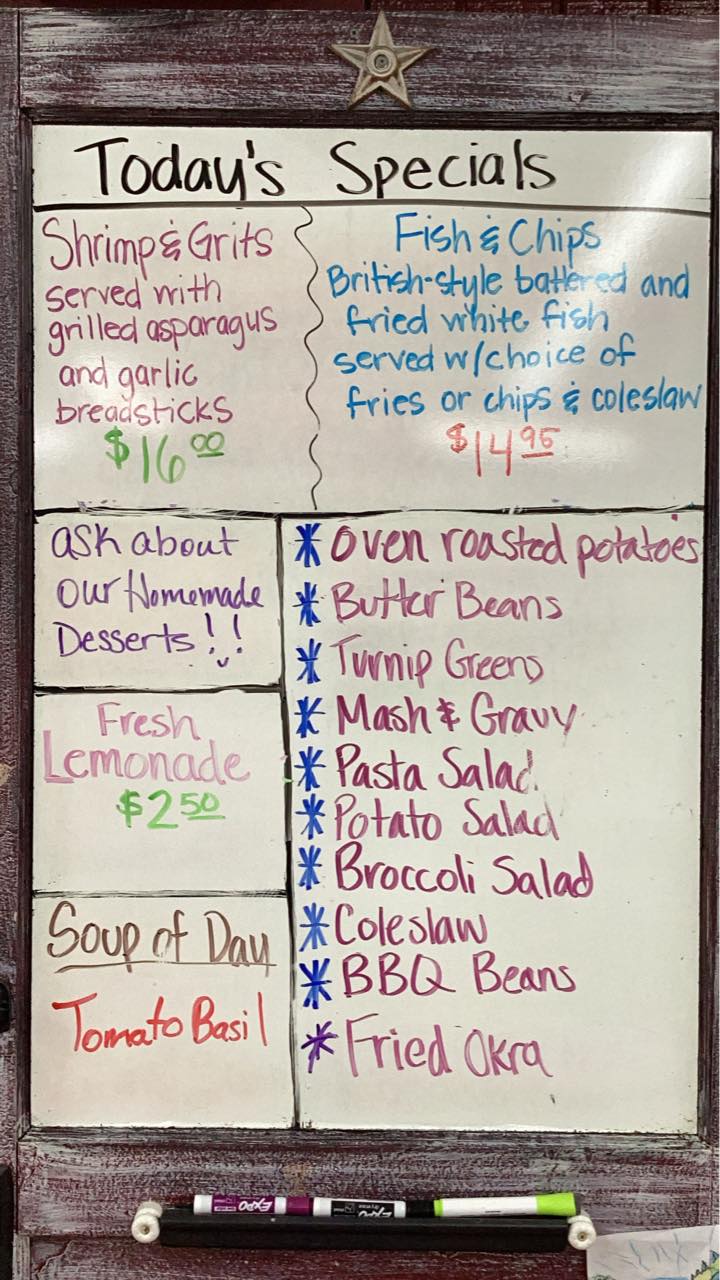 Today's Specials
Shrimp & Grits
served with
grilled asparagus
and garlic
breadsticks
$16.00
Fish & Chips
British-style battered and
fried white fish
served w/choice of
fries or chips & coleslaw
$14.95
ask about
our Homemade
Desserts!!
Fresh
Lemonade
$2.50
Soup of Day
Tomato Basil
* Oven roasted potatoes
* Butter Beans
* Turnip Greens
* Mash & Gravy
* Pasta Salad
* Potato Salad
* Broccoli Salad
* Coleslaw
* BBQ Beans
* Fried Okra
EXPO
EXPO